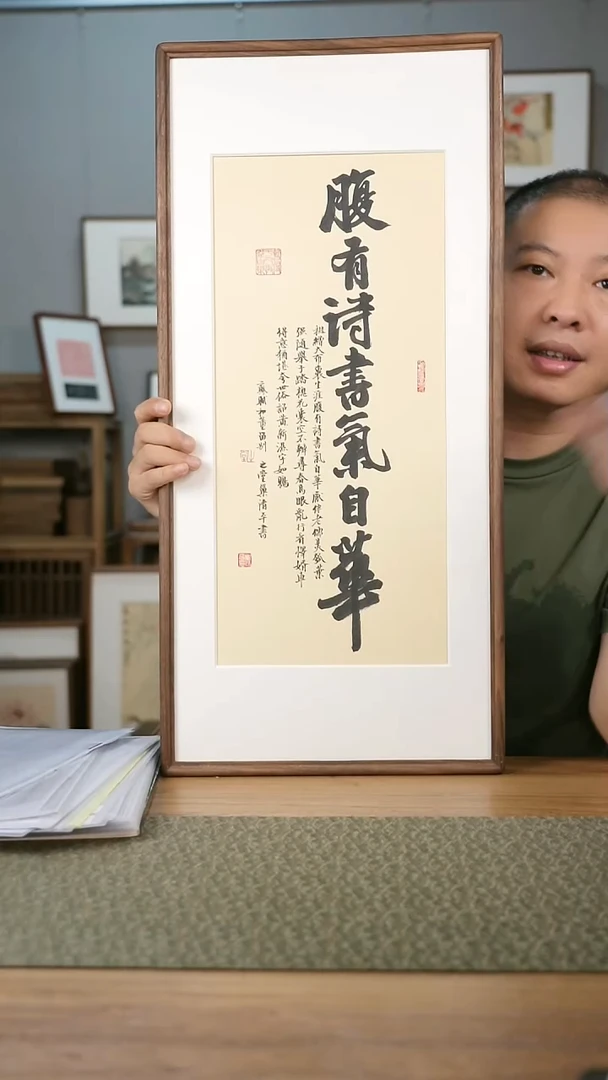 腹有詩書氣自華
粗繒大布裹生涯腹有詩書氣自華厭伴老儒烹瓠葉
強隨舉子踏槐花囊空不辦尋春馬眼亂行看擇婿車
得意猶堪夸世俗詔黃新濕字如鴉